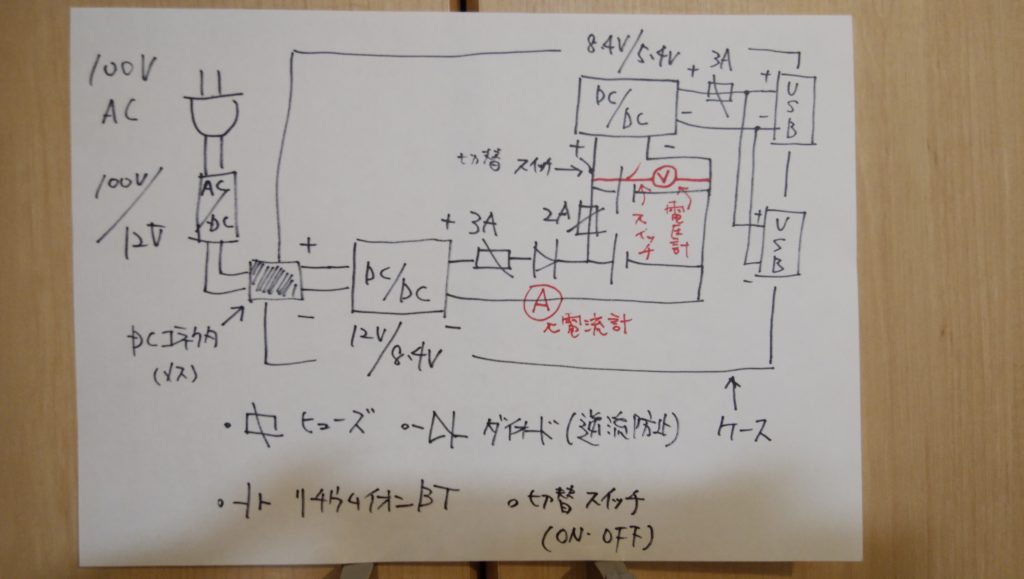 100V
AC
100V/
12V
AC/
DC
DCコネクタ
(メス)
+
-
DC/
DC
12V/8.4V
+
-
3A
2A
A
電流計
8.4V/5.4V
DC/
DC
+
-
+
-
3A
切替スイッチ→
スイッチ
V
電圧計
+
-
USB
+
-
USB
ケース
・ヒューズ
・ダイオード(逆流防止)
・リチウムイオンBT
・切替スイッチ
(ON・OFF)